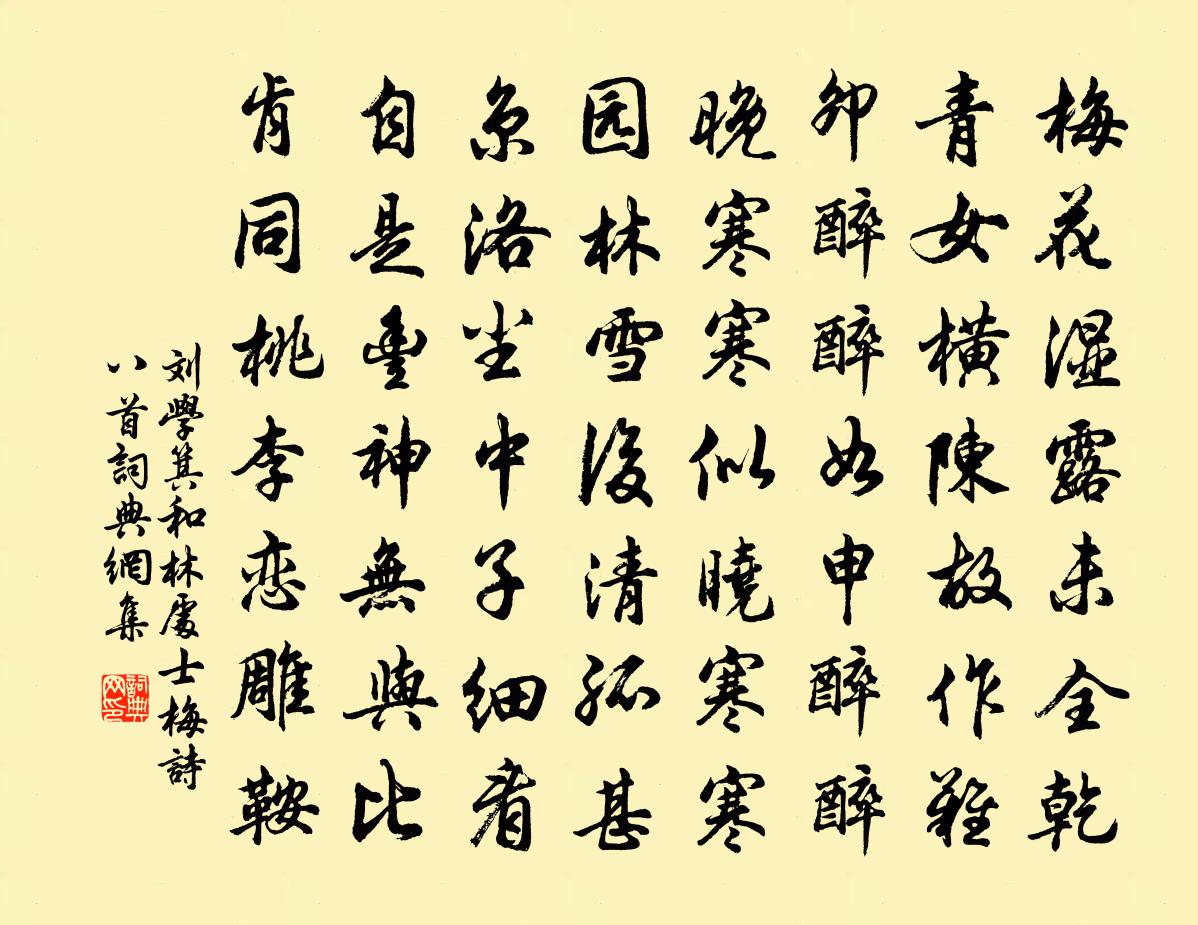 梅花湿露未全乾
青女橫陳故作難
卯醉醉如申醉醉
晚寒寒似曉寒寒
园林雪後清孤甚
京洛尘中子細看
自是豊神無與比
肯同桃李恋雕鞍
刘學箕和林處士梅詩
八首詞典網集
詞典网印